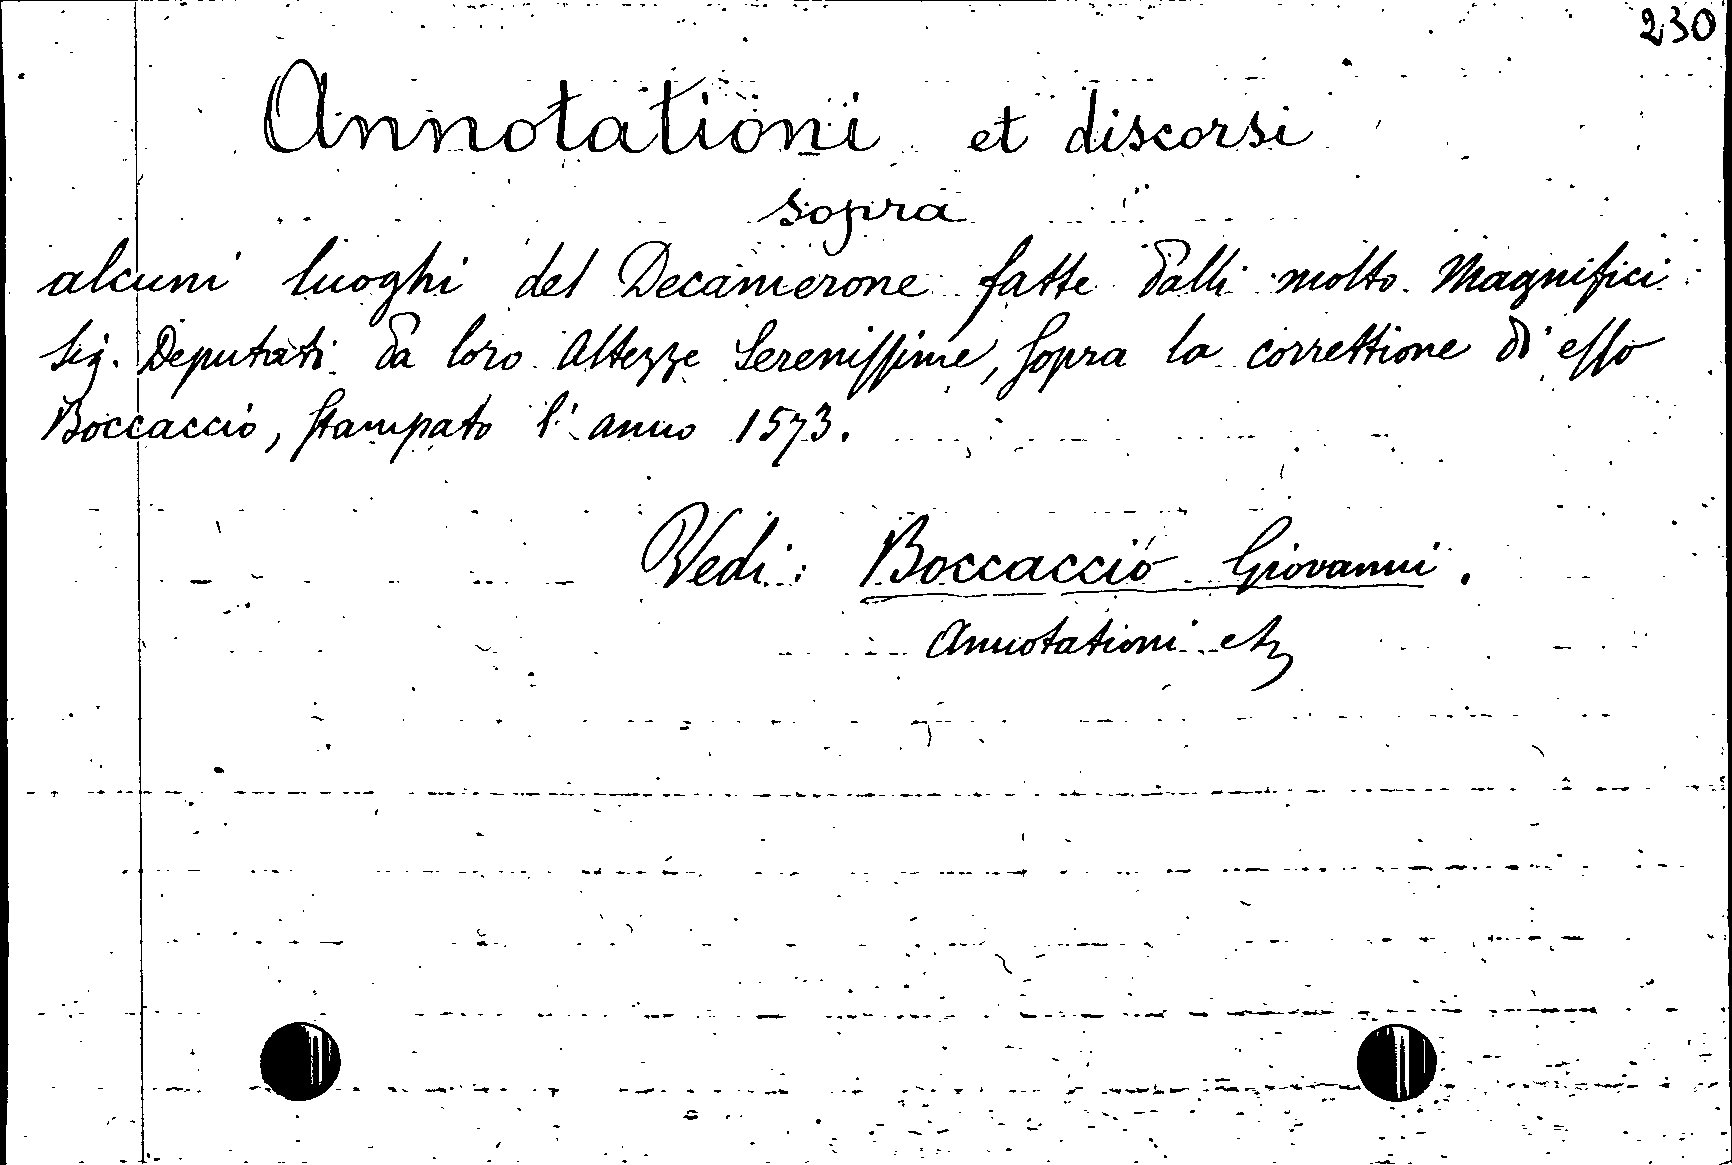 230
Annotationi et discorsi
sopra
alcuni luoghi del Decamerone fatte dalli molto Magnifici
Sig. Deputati da loro Altezze Serenissime, sopra la correttione di esso
Boccaccio, stampato l'anno 1573.
Vedi: Boccaccio Giovanni.
Annotationi etc